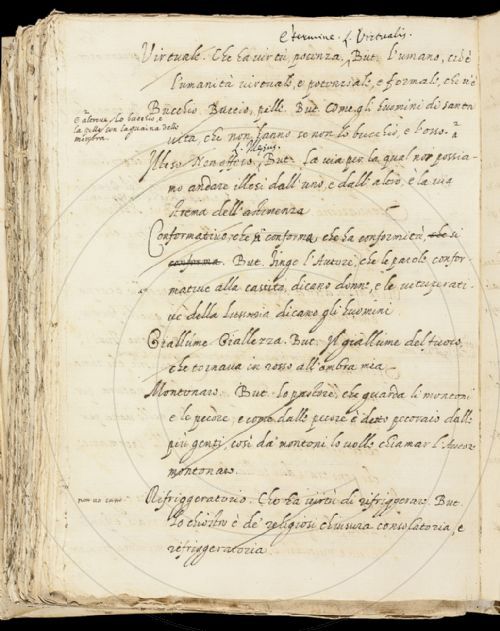 È termine. L. Virtualis.
Virtuale. Che ha virtù, potenza. But. L'umano, cioè
l'umanità virtuale, e potenziale, e formale, che v'è
Buccio. Buccio, pelle. But. Come gli huomini di santa
vita, che non hanno se non lo buccio, e l'osso.
e altrove, Lo bucchio, e
la pelle con la guaina delle
membra.
Illeso. Non offeso. But. La via per la qual non possia-
mo andare illesi dall'uno, e dall'altro, è la via
strema dell'astinenza
Conformativo, che conforma, che ha conformità, che si
conforma. But. finge l'Autore, che le parole confor-
mative alla castità, dicano donne, e le vituperati-
ve della Lussuria dicano gli huomini
Giallume. Giallezza. But. Il giallume del fuoco,
che tornava in rosso all'ombra mea
Montonaro. But. lo pastore, che guarda li montoni
e le pecore, e come dalle pecore è detto pecoraio dalle
più genti, così da montoni lo volle chiamar l'Autor
montonaro.
non uno
Refriggeratorio. Che ha virtù di refriggerare. But.
Lo chiostro è de' religiosi chiusura consolatoria, e
refriggeratoria